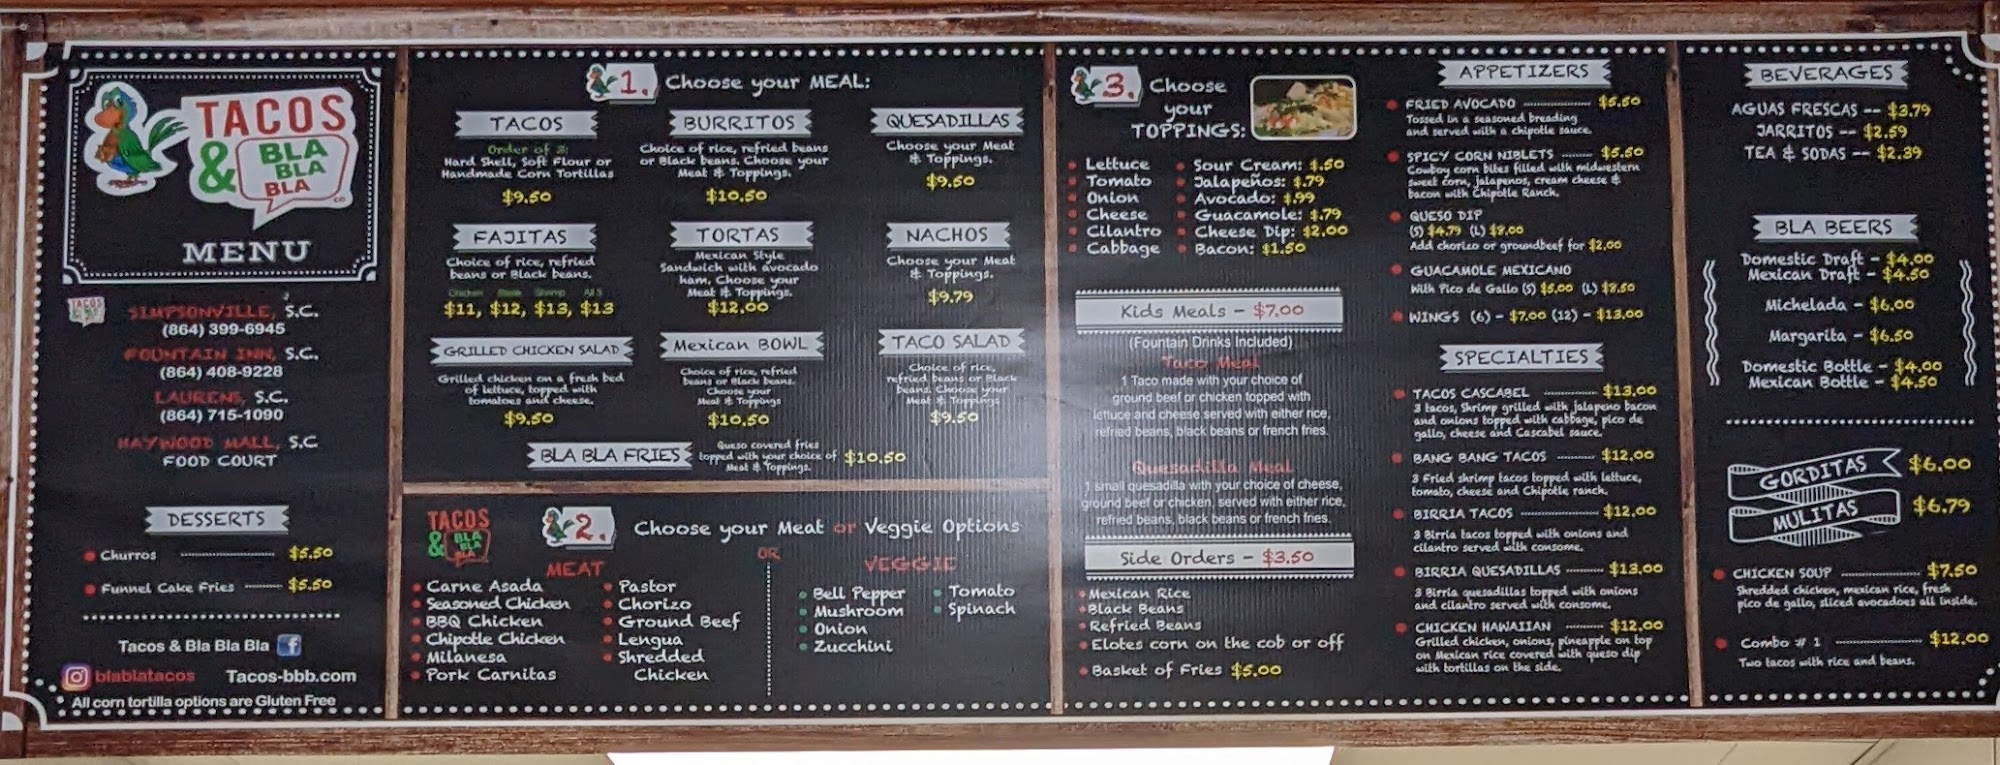 TACOS
& BLA
BLA
BLA
MENU
SIMPSONVILLE, S.C.
(864) 399-6945
FOUNTAIN INN, S.C.
(864) 408-9228
LAURENS, S.C.
(864) 715-1090
HAYWOOD MALL, S.C
FOOD COURT
DESSERTS
Churros $5.50
Funnel Cake Fries $5.50
Tacos & Bla Bla Bla
blablatacos Tacos-bbb.com
All corn tortilla options are Gluten Free
1. Choose your MEAL:
TACOS
Order of 3:
Hard Shell, Soft Flour or
Handmade Corn Tortillas
$9.50
BURRITOS
Choice of rice, refried beans
or Black beans. Choose your
Meat & Toppings.
$10.50
QUESADILLAS
Choose your Meat
& Toppings.
$9.50
FAJITAS
Choice of rice, refried
beans or Black beans.
Chicken Steak Shrimp All 3
$11, $12, $13, $13
TORTAS
Mexican Style
Sandwich with avocado
ham, Choose your
Meat & Toppings.
$12.00
NACHOS
Choose your Meat
& Toppings.
$9.79
GRILLED CHICKEN SALAD
Grilled chicken on a fresh bed
of lettuce, topped with
tomatoes and cheese.
$9.50
Mexican BOWL
Choice of rice, refried
beans or Black beans.
Choose your
Meat & Toppings
$10.50
TACO SALAD
Choice of rice,
refried beans or Black
beans. Choose your
Meat & Toppings
$9.50
BLA BLA FRIES
Queso covered fries
topped with your choice of
Meat & Toppings.
$10.50
TACOS
& BLA
BLA
BLA
2. Choose your Meat or Veggie Options
MEAT
Carne Asada
Seasoned Chicken
BBQ Chicken
Chipotle Chicken
Milanesa
Pork Carnitas
Pastor
Chorizo
Ground Beef
Lengua
Shredded
Chicken
OR
VEGGIE
Bell Pepper
Mushroom
Onion
Zucchini
Tomato
Spinach
3. Choose
your
TOPPINGS:
Lettuce
Tomato
Onion
Cheese
Cilantro
Cabbage
Sour Cream: $.50
Jalapeños: $.79
Avocado: $.99
Guacamole: $.79
Cheese Dip: $2.00
Bacon: $1.50
Kids Meals - $7.00
(Fountain Drinks Included)
Taco Meal
1 Taco made with your choice of
ground beef or chicken topped with
lettuce and cheese served with either rice,
refried beans, black beans or french fries.
Quesadilla Meal
1 small quesadilla with your choice of cheese,
ground beef or chicken, served with either rice,
refried beans, black beans or french fries.
Side Orders - $3.50
Mexican Rice
Black Beans
Refried Beans
Elotes corn on the cob or off
Basket of Fries $5.00
APPETIZERS
FRIED AVOCADO $5.50
Tossed in a seasoned breading
and served with a chipotle sauce.
SPICY CORN NIBLETS $5.50
Cowboy corn bites filled with midwestern
sweet corn, jalapenos, cream cheese &
bacon with Chipotle Ranch.
QUESO DIP
(S) $4.79 (L) $8.00
Add chorizo or groundbeef for $2.00
GUACAMOLE MEXICANO
With Pico de Gallo (S) $5.00 (L) $8.50
WINGS (6) - $7.00 (12) - $13.00
SPECIALTIES
TACOS CASCABEL $13.00
3 tacos, Shrimp grilled with jalapeno bacon
and onions topped with cabbage, pico de
gallo, cheese and Cascabel sauce.
BANG BANG TACOS $12.00
3 Fried shrimp tacos topped with lettuce,
tomato, cheese and Chipotle ranch.
BIRRIA TACOS $12.00
3 Birria tacos topped with onions and
cilantro served with consome.
BIRRIA QUESADILLAS $13.00
3 Birria quesadillas topped with onions
and cilantro served with consome.
CHICKEN HAWAIIAN $12.00
Grilled chicken, onions, pineapple on top
on Mexican rice covered with queso dip
with tortillas on the side.
BEVERAGES
AGUAS FRESCAS -- $3.79
JARRITOS -- $2.59
TEA & SODAS -- $2.39
BLA BEERS
Domestic Draft - $4.00
Mexican Draft - $4.50
Michelada - $6.00
Margarita - $6.50
Domestic Bottle - $4.00
Mexican Bottle - $4.50
GORDITAS $6.00
MULITAS $6.79
CHICKEN SOUP $7.50
Shredded chicken, mexican rice, fresh
pico de gallo, sliced avocadoes all inside.
Combo # 1 $12.00
Two tacos with rice and beans.